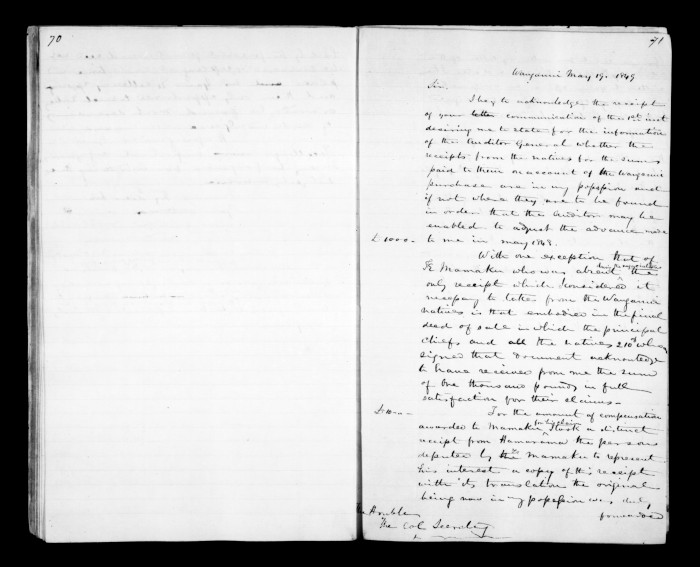 70
71
Wanganui May 19. 1849
Sir.
I beg to acknowledge the receipt
of your letter communication of the 1st inst
desiring me to state for the information
of the Auditor General whether the
receipts from the natives for the sums
paid to them on account of the Wanganui
purchase are in my possession and
if not where they are to be found
in order that the Auditor may be
enabled to adjust the advance made
£1000- to me in May 1848.
With one exception that of
E Mamaku who was absent the
only receipt which I considered it
necessary to take from the Wanganui
natives is that embodied in the final
deed of sale in which the principal
chiefs and all the natives 210 who
signed that document acknowledge
to have received from me the sum
of One thousand pounds in full
satisfaction for their claims-
For the amount of compensation
for his claim
awarded to Mamaku I took a distinct
receipt from Hamarama the person
deputed by the Mamaku to represent
his interest a copy of this receipt
with its translation the original
being now in my possession was duly
forwarded
The Honble
The Col Secretary